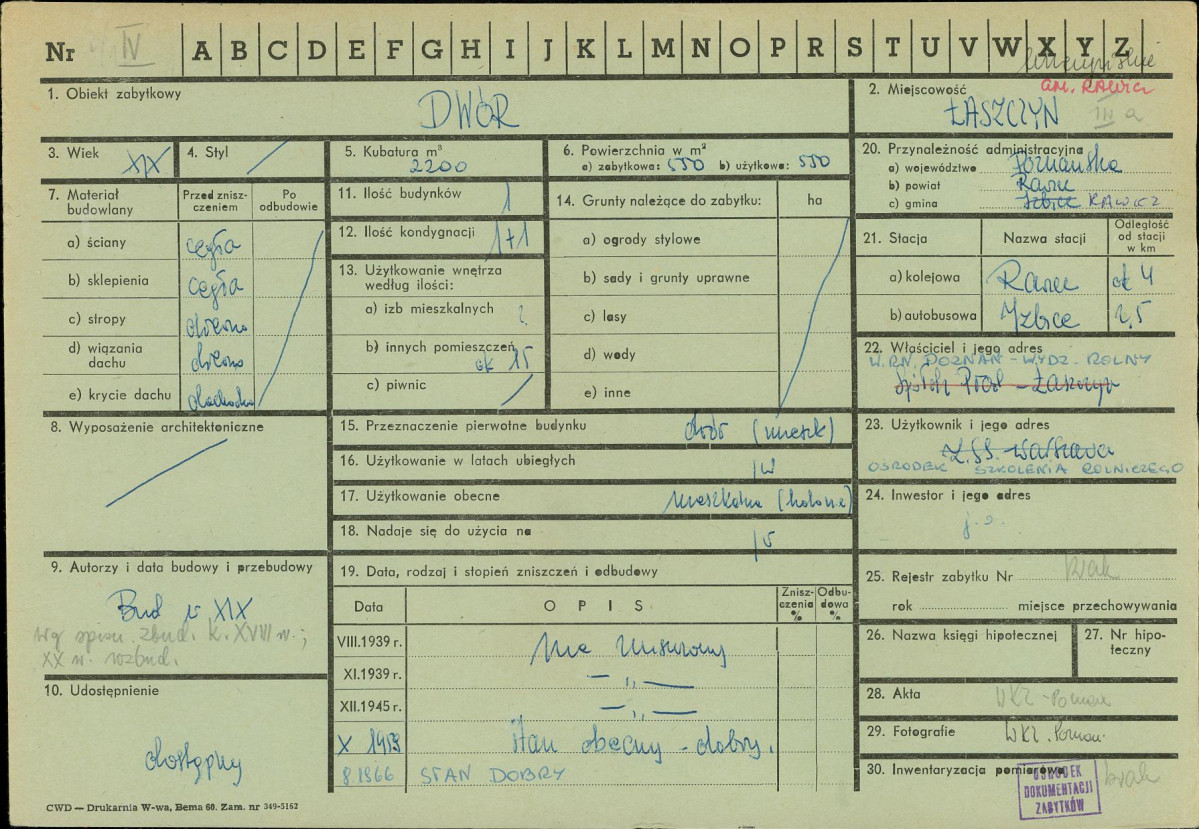 Nr IV A B C D E F G H I J K L M N O P R S T U V W X Y Z
1. Obiekt zabytkowy
DWÓR
2. Miejscowość
GM. RAWICZ
ŁASZCZYN
IV a
3. Wiek XIX
4. Styl /
5. Kubatura m³
2200
6. Powierzchnia w m²
a) zabytkowa: 550 b) użytkowa: 550
20. Przynależność administracyjna
a) województwo Poznańska
b) powiat
c) gmina RAWICZ
7. Materiał budowlany
Przed zniszczeniem
Po odbudowie
a) ściany cegła
b) sklepienia cegła
c) stropy
d) wiązania dachu
e) krycie dachu
11. Ilość budynków 1
12. Ilość kondygnacji 1+1
13. Użytkowanie wnętrza według ilości:
a) izb mieszkalnych ?
b) innych pomieszczeń
ok 15
c) piwnic /
14. Grunty należące do zabytku: ha
a) ogrody stylowe
b) sady i grunty uprawne
c) lasy
d) wody
e) inne
21. Stacja Nazwa stacji Odległość od stacji w km
a) kolejowa ok 4
b) autobusowa 2,5
22. Właściciel i jego adres
W.RN POZNAŃ - WYDZ. ROLNY
8. Wyposażenie architektoniczne
15. Przeznaczenie pierwotne budynku dwór (mieszk)
16. Użytkowanie w latach ubiegłych
17. Użytkowanie obecne
18. Nadaje się do użycia na
23. Użytkownik i jego adres
Z.SS. Warszawa
OŚRODEK SZKOLENIA ROLNICZEGO
24. Inwestor i jego adres
9. Autorzy i data budowy i przebudowy
Bud w XIX
Wg spisu zbud. k. XVIII w.;
XX w. rozbud.
19. Data, rodzaj i stopień zniszczeń i odbudowy
Data OPIS Zniszczenia % Odbudowa %
VIII.1939 r. Nie
XI.1939 r. — „ —
XII.1945 r. — „ —
X 1959 Stan obecny - dobry.
8.1966 STAN DOBRY
25. Rejestr zabytku Nr brak
rok miejsce przechowywania
26. Nazwa księgi hipotecznej
27. Nr hipoteczny
10. Udostępnienie
dostępny
28. Akta WKZ - Poznań
29. Fotografie WKZ. Poznań
30. Inwentaryzacja pomiarowa brak
OŚRODEK
DOKUMENTACJI
ZABYTKÓW
CWD — Drukarnia W-wa, Bema 60. Zam. nr 349-5162